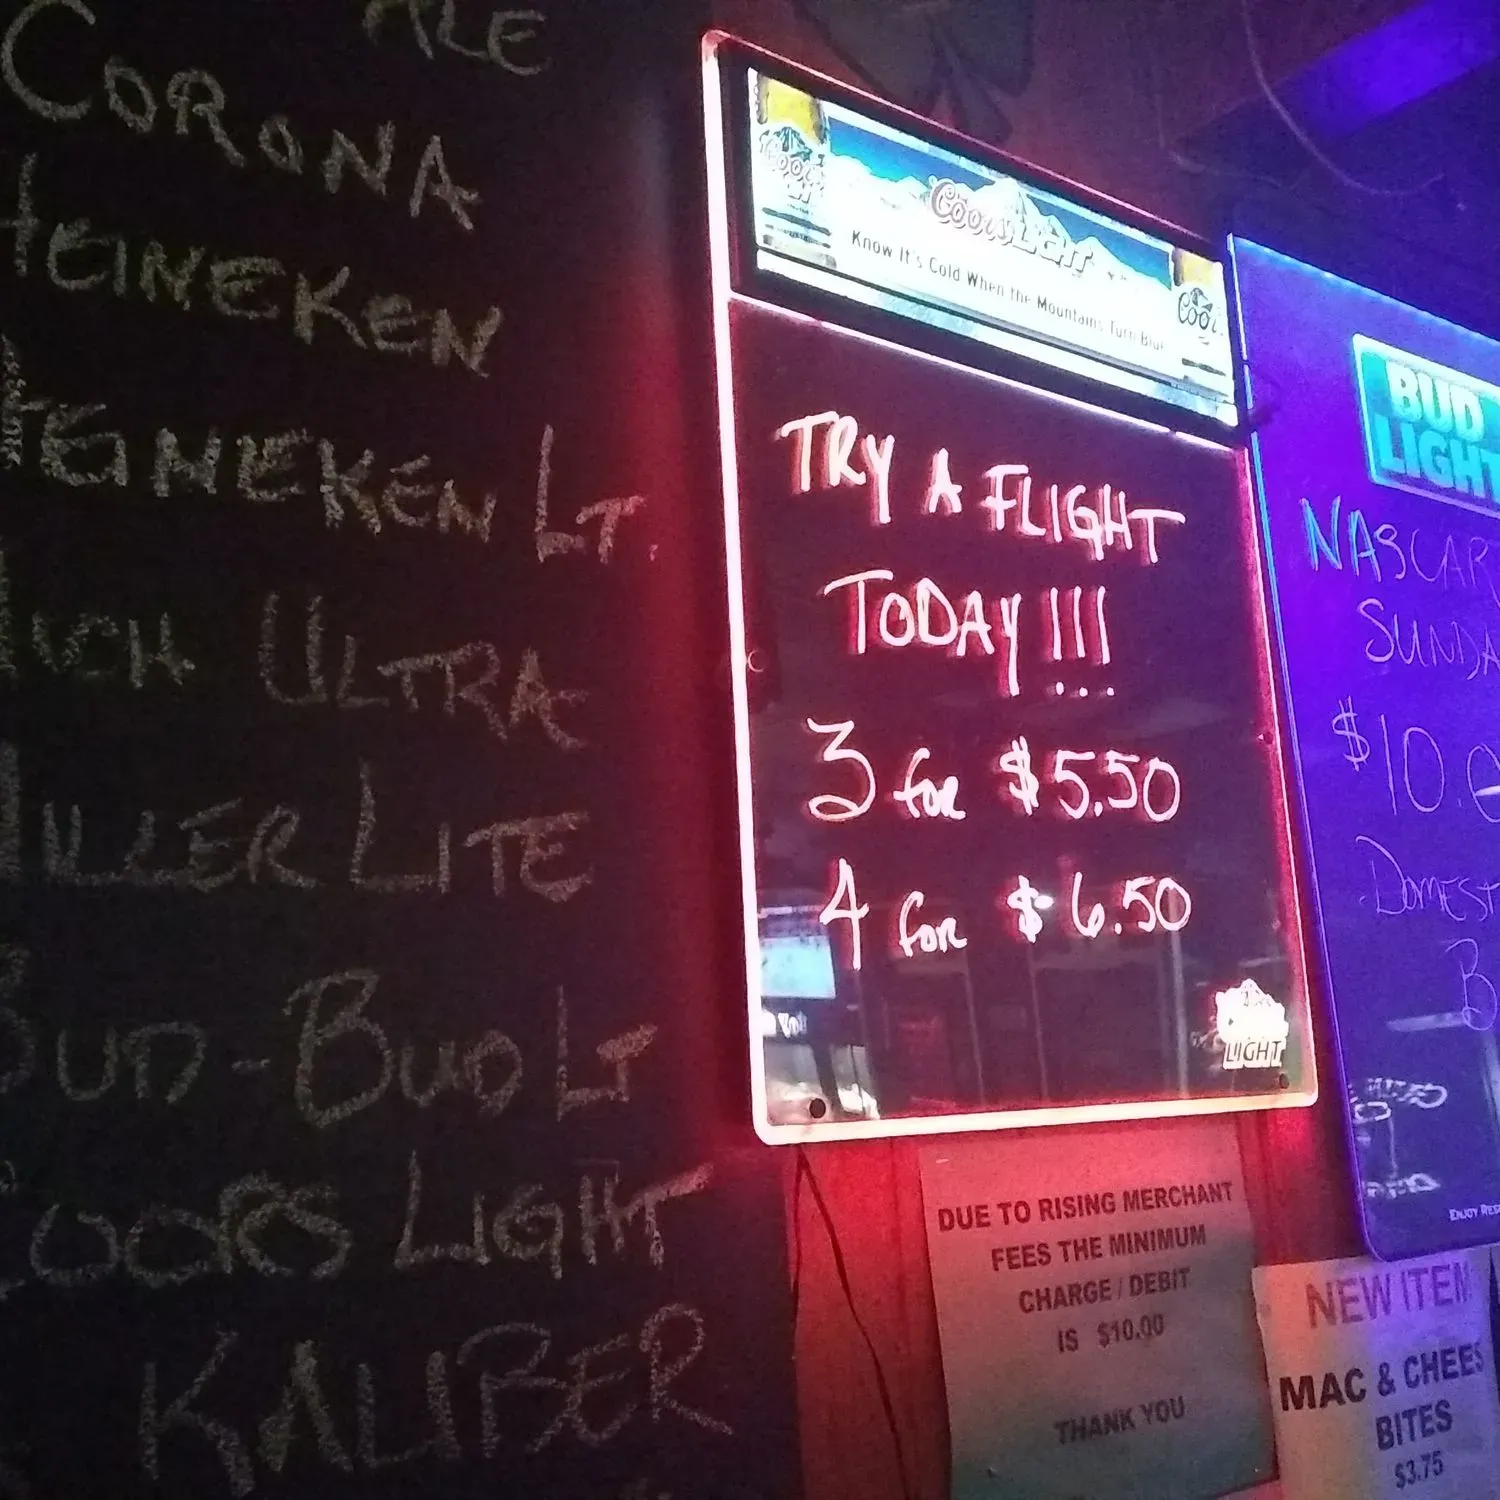 ALE
CORONA
HEINEKEN
HEINEKEN LT.
MICH ULTRA
MILLER LITE
BUD - BUD LT
COORS LIGHT
KALIBER
COORS LIGHT
Know It's Cold When the Mountains Turn Blue
TRY A FLIGHT
TODAY!!!
3 for $5.50
4 for $6.50
LIGHT
DUE TO RISING MERCHANT
FEES THE MINIMUM
CHARGE / DEBIT
IS $10.00
THANK YOU
BUD
LIGHT
NASCAR
SUNDA
$10.0
DOMEST
B
ENJOY RES
NEW ITEM
MAC & CHEES
BITES
$3.75